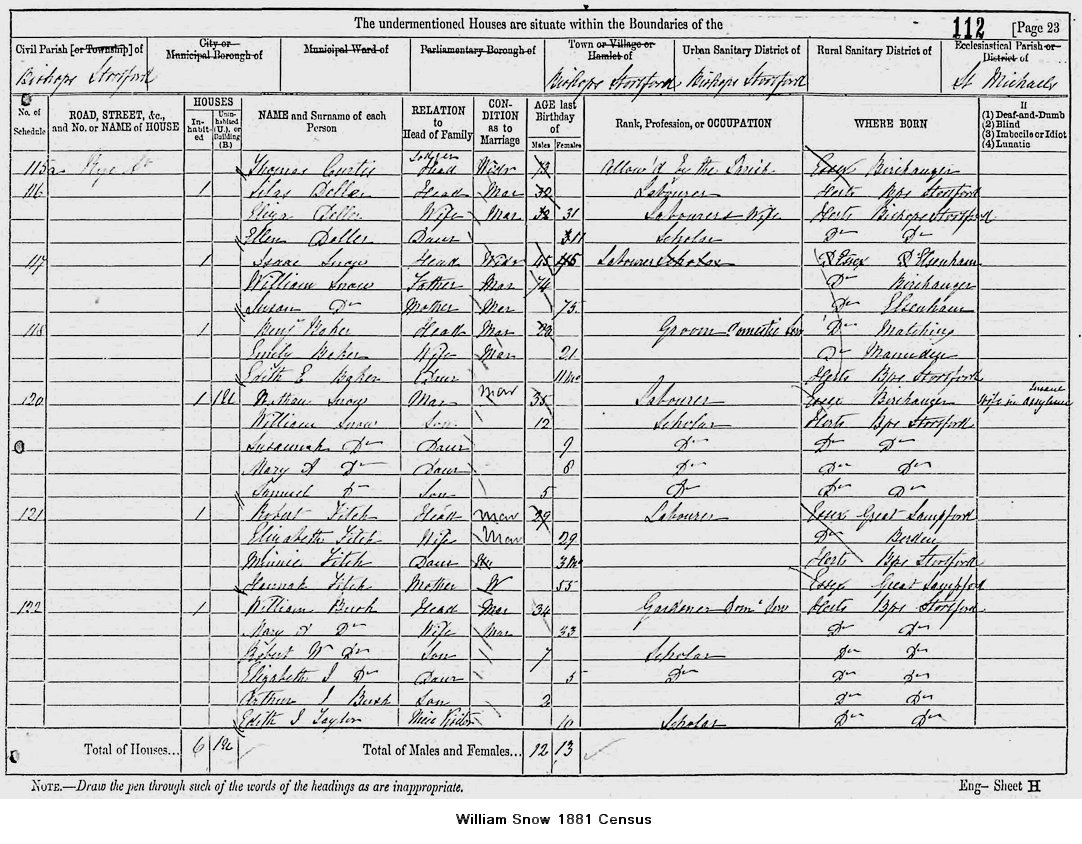 The undermentioned Houses are situate within the Boundaries of the 112 [Page 23
Civil Parish [or Township] of City or Municipal Borough of Municipal Ward of Parliamentary Borough of Town or Village or Hamlet of Urban Sanitary District of Rural Sanitary District of Ecclesiastical Parish or District of
Bishops Stortford Bishops Stortford Bishops Stortford St Michaels
No. of Schedule ROAD, STREET, &c., and No. or NAME of HOUSE HOUSES In-habit-ed Unin-habited (U.), or Building (B.) NAME and Surname of each Person RELATION to Head of Family CON-DITION as to Marriage AGE last Birthday of Males Females Rank, Profession, or OCCUPATION WHERE BORN If (1) Deaf-and-Dumb (2) Blind (3) Imbecile or Idiot (4) Lunatic
115a Rye St Thomas Curtis Lodger Head Widr 73 Allow'd by the Parish Essex Birchanger
116 1 Silas Deller Head Mar 32 Labourer Herts Bps Stortford
Eliza Deller Wife Mar 31 Labourers Wife Herts Bishops Stortford
Ellen Deller Daur 11 Scholar Do Do
117 1 Isaac Snow Head Widr 45 Labourer Scholar Essex Elsenham
William Snow Father Mar 74 Do Birchanger
Susan Do Mother Mar 75 Do Elsenham
118 1 Benj Baker Head Mar 23 Groom Domestic Serv Do Matching
Emily Baker Wife Mar 21 Do Manuden
Edith E Baker Daur 11 Mo Herts Bps Stortford
120 1 1U Nathan Snow Mar Mar 35 Labourer Essex Birchanger Wife in Insane Asylum
William Snow Son 12 Scholar Herts Bps Stortford
Susannah Do Daur 9 Do Do Do
Mary A Do Daur 8 Do Do Do
Samuel Do Son 5 Do Do Do
121 1 Robert Fitch Head Mar 29 Labourer Essex Great Sampford
Elizabeth Fitch Wife Mar 29 Do Berden
Minnie Fitch Daur 3 Mo Herts Bps Stortford
Hannah Fitch Mother W 55 Essex Great Sampford
122 1 William Bush Head Mar 34 Gardener Domc Serv Herts Bps Stortford
Mary A Do Wife Mar 33 Do Do
Robert W Do Son 7 Scholar Do Do
Elizabeth J Do Daur 5 Do Do Do
Arthur J Bush Son 2 Do Do
Edith J Taylor Niece Visitor 10 Scholar Do Do
Total of Houses... 6 1U Total of Males and Females... 12 13
NOTE.—Draw the pen through such of the words of the headings as are inappropriate. Eng– Sheet H
William Snow 1881 Census